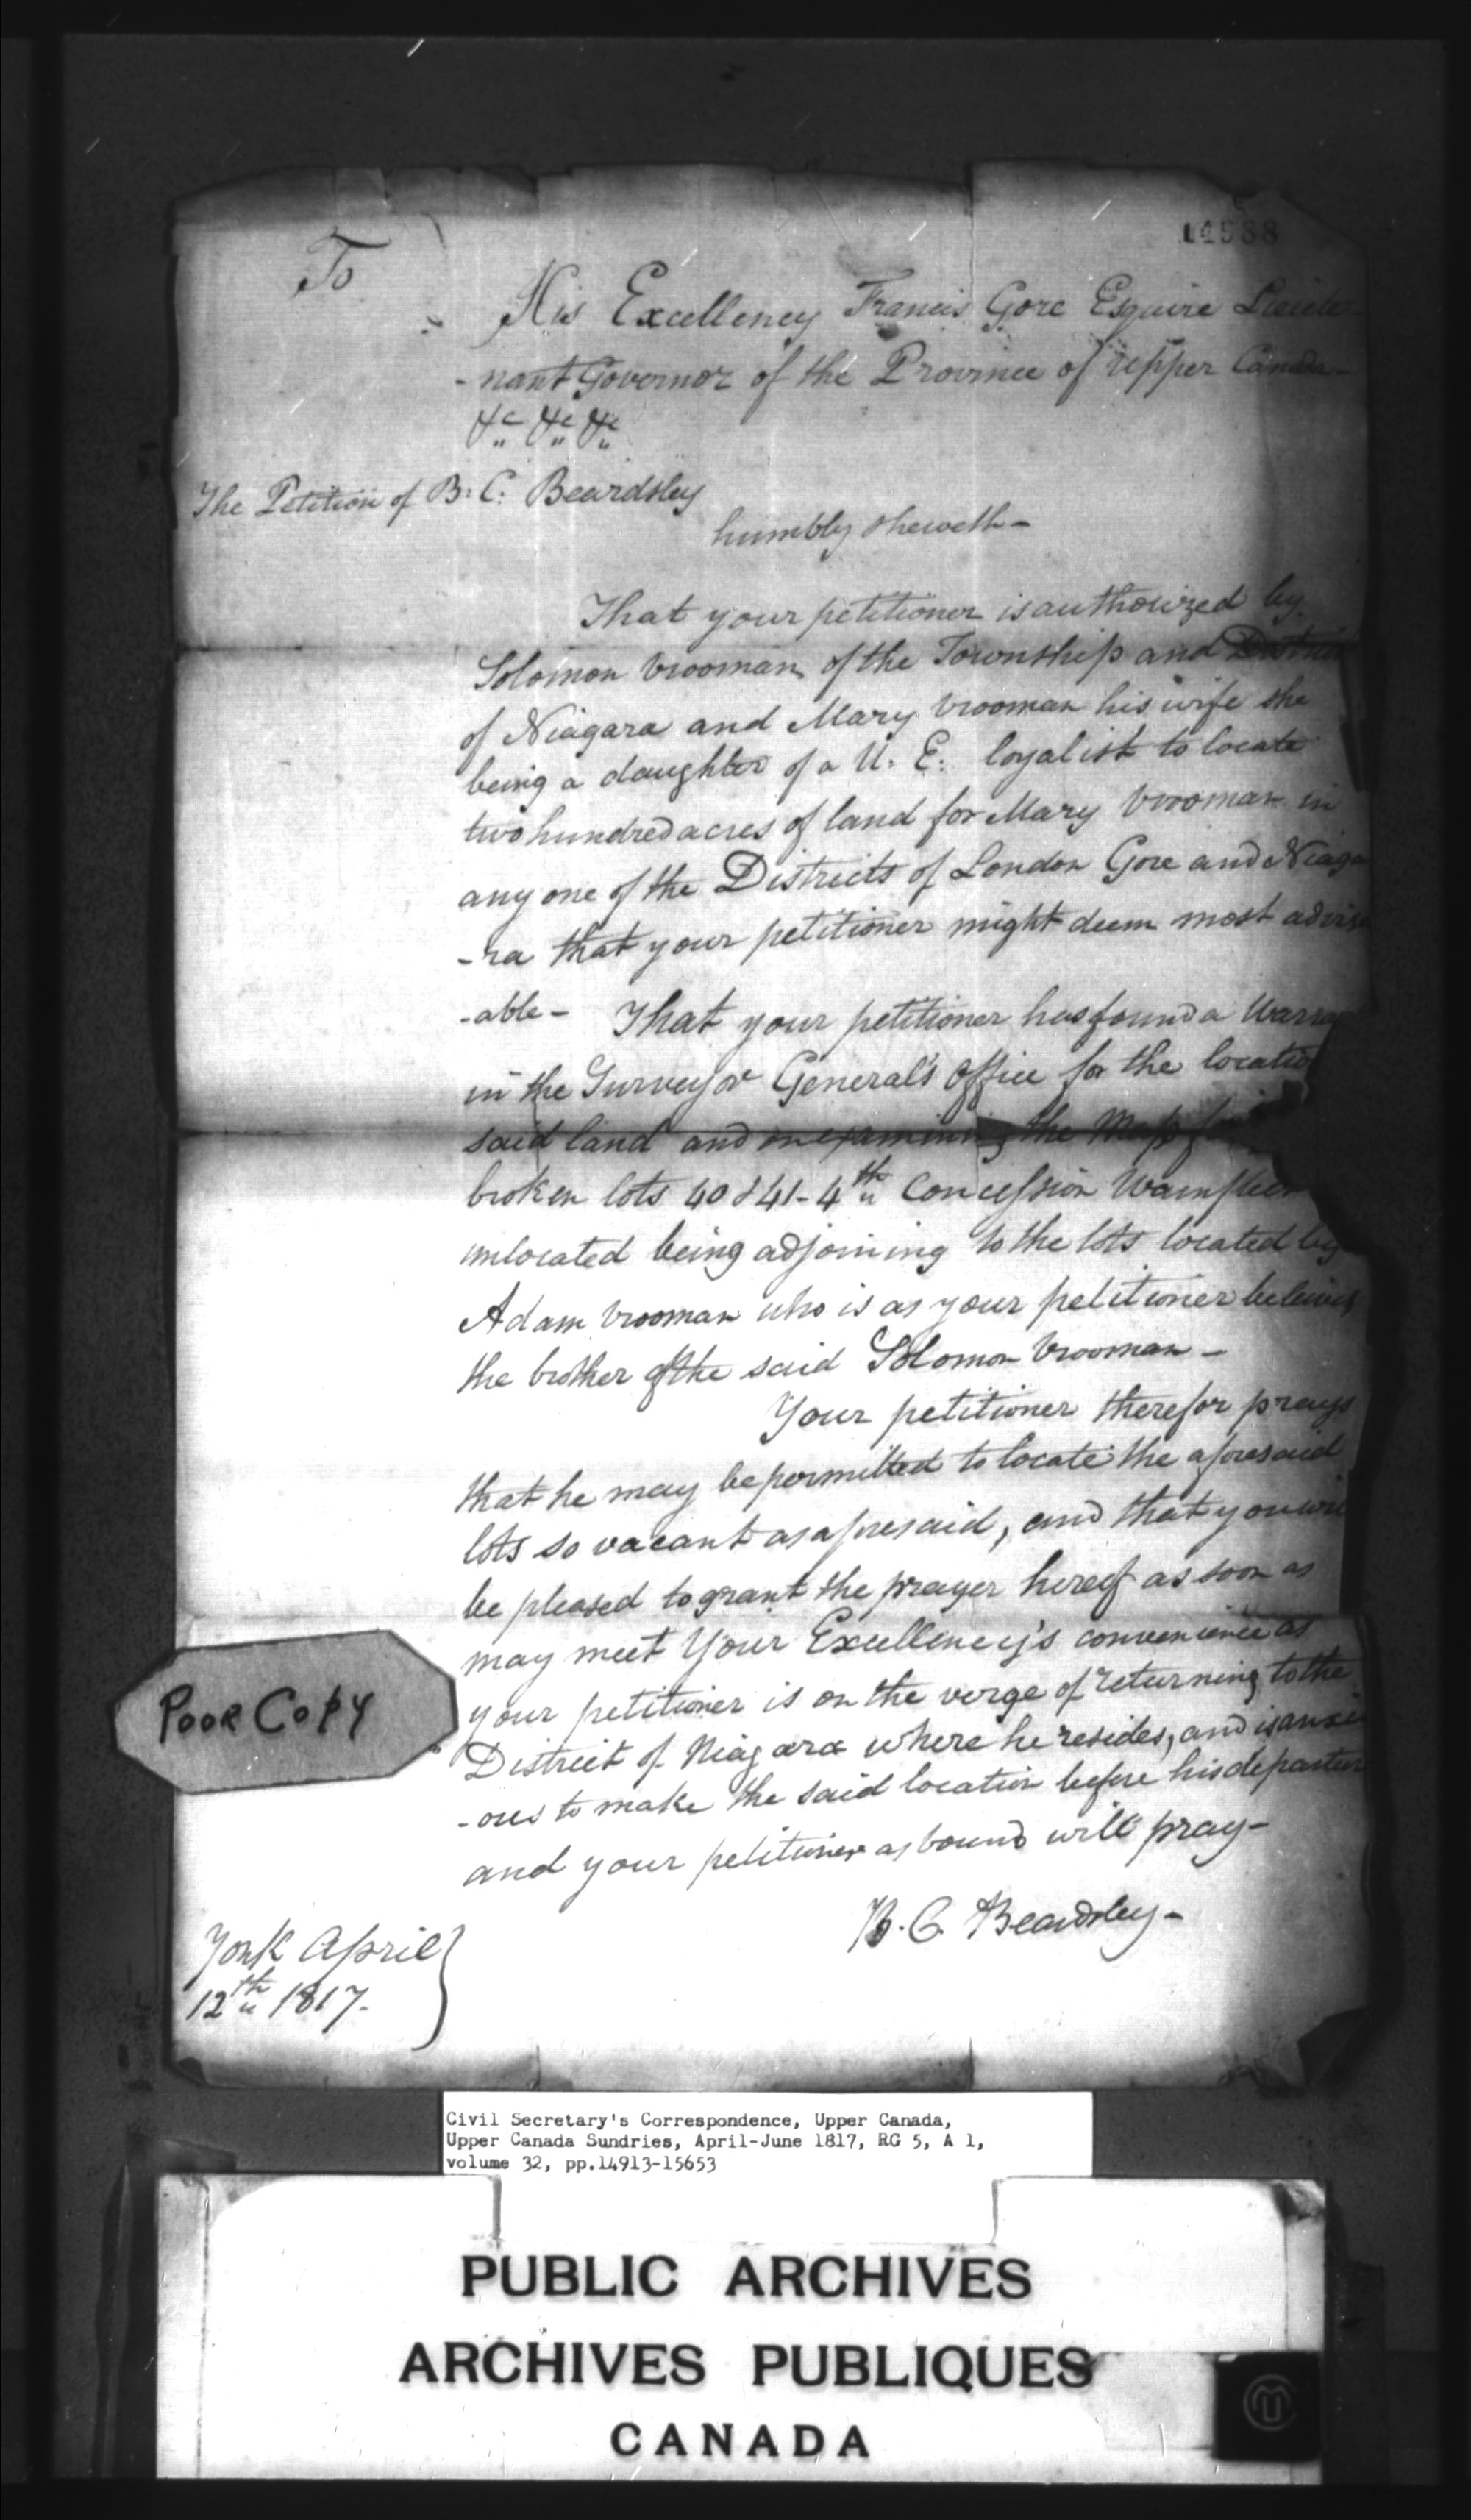 14988
To
His Excellency Francis Gore Esquire Lieute
-nant Governor of the Province of Upper Canada-
&c &c &c
The Petition of B: C: Beardsley
humbly sheweth-
That your petitioner is authorized by
Solomon Vrooman of the Township and District
of Niagara and Mary Vrooman his wife she
being a daughter of a U. E. loyalist to locate
two hundred acres of land for Mary Vrooman in
any one of the Districts of London Gore and Niaga
-ra that your petitioner might deem most advise
-able- That your petitioner has found a Warra
in the Surveyor General's Office for the locatio
said land and on examining the Map
broken lots 40 & 41-4th Concession Wainfleet
unlocated being adjoining to the lots located by
Adam Vrooman who is as your petitioner beleives
the brother of the said Solomon Vrooman-
Your petitioner therefor prays
that he may be permitted to locate the aforesaid
lots so vacant as aforesaid, and that you will
be pleased to grant the prayer hereof as soon as
may meet Your Excellency's convenience as
your petitioner is on the verge of returning to the
District of Niagara where he resides, and is anxi
-ous to make the said location before his departure
and your petitioner as bound will pray-
B. C. Beardsley-
York April
12th 1817.
POOR COPY
Civil Secretary's Correspondence, Upper Canada,
Upper Canada Sundries, April-June 1817, RG 5, A 1,
volume 32, pp.14913-15653
PUBLIC ARCHIVES
ARCHIVES PUBLIQUES
CANADA